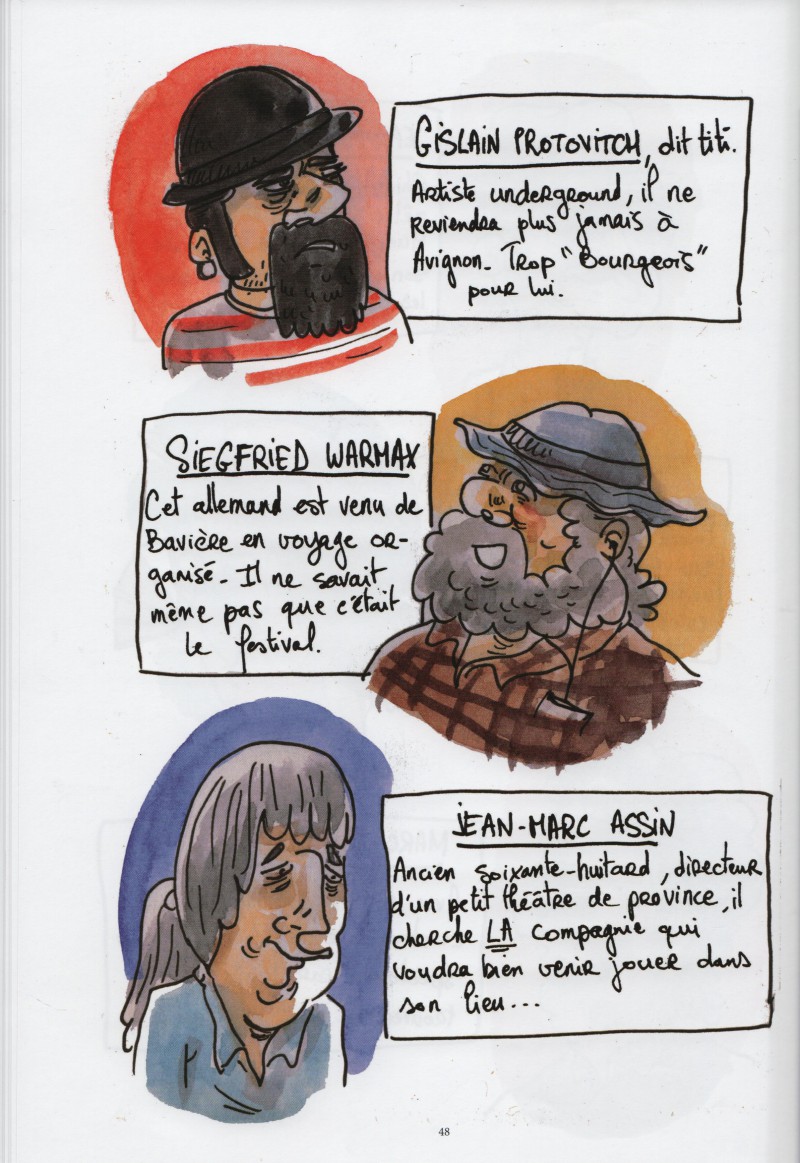 GISLAIN PROTOVITCH, dit titi.
Artiste underground, il ne
reviendra plus jamais à
Avignon. Trop "Bourgeois"
pour lui.
SIEGFRIED WARMAX
Cet allemand est venu de
Bavière en voyage or-
ganisé. Il ne savait
même pas que c'était
le festival.
JEAN-MARC ASSIN
Ancien soixante-huitard, directeur
d'un petit théâtre de province, il
cherche LA compagnie qui
voudra bien venir jouer dans
son lieu...
48